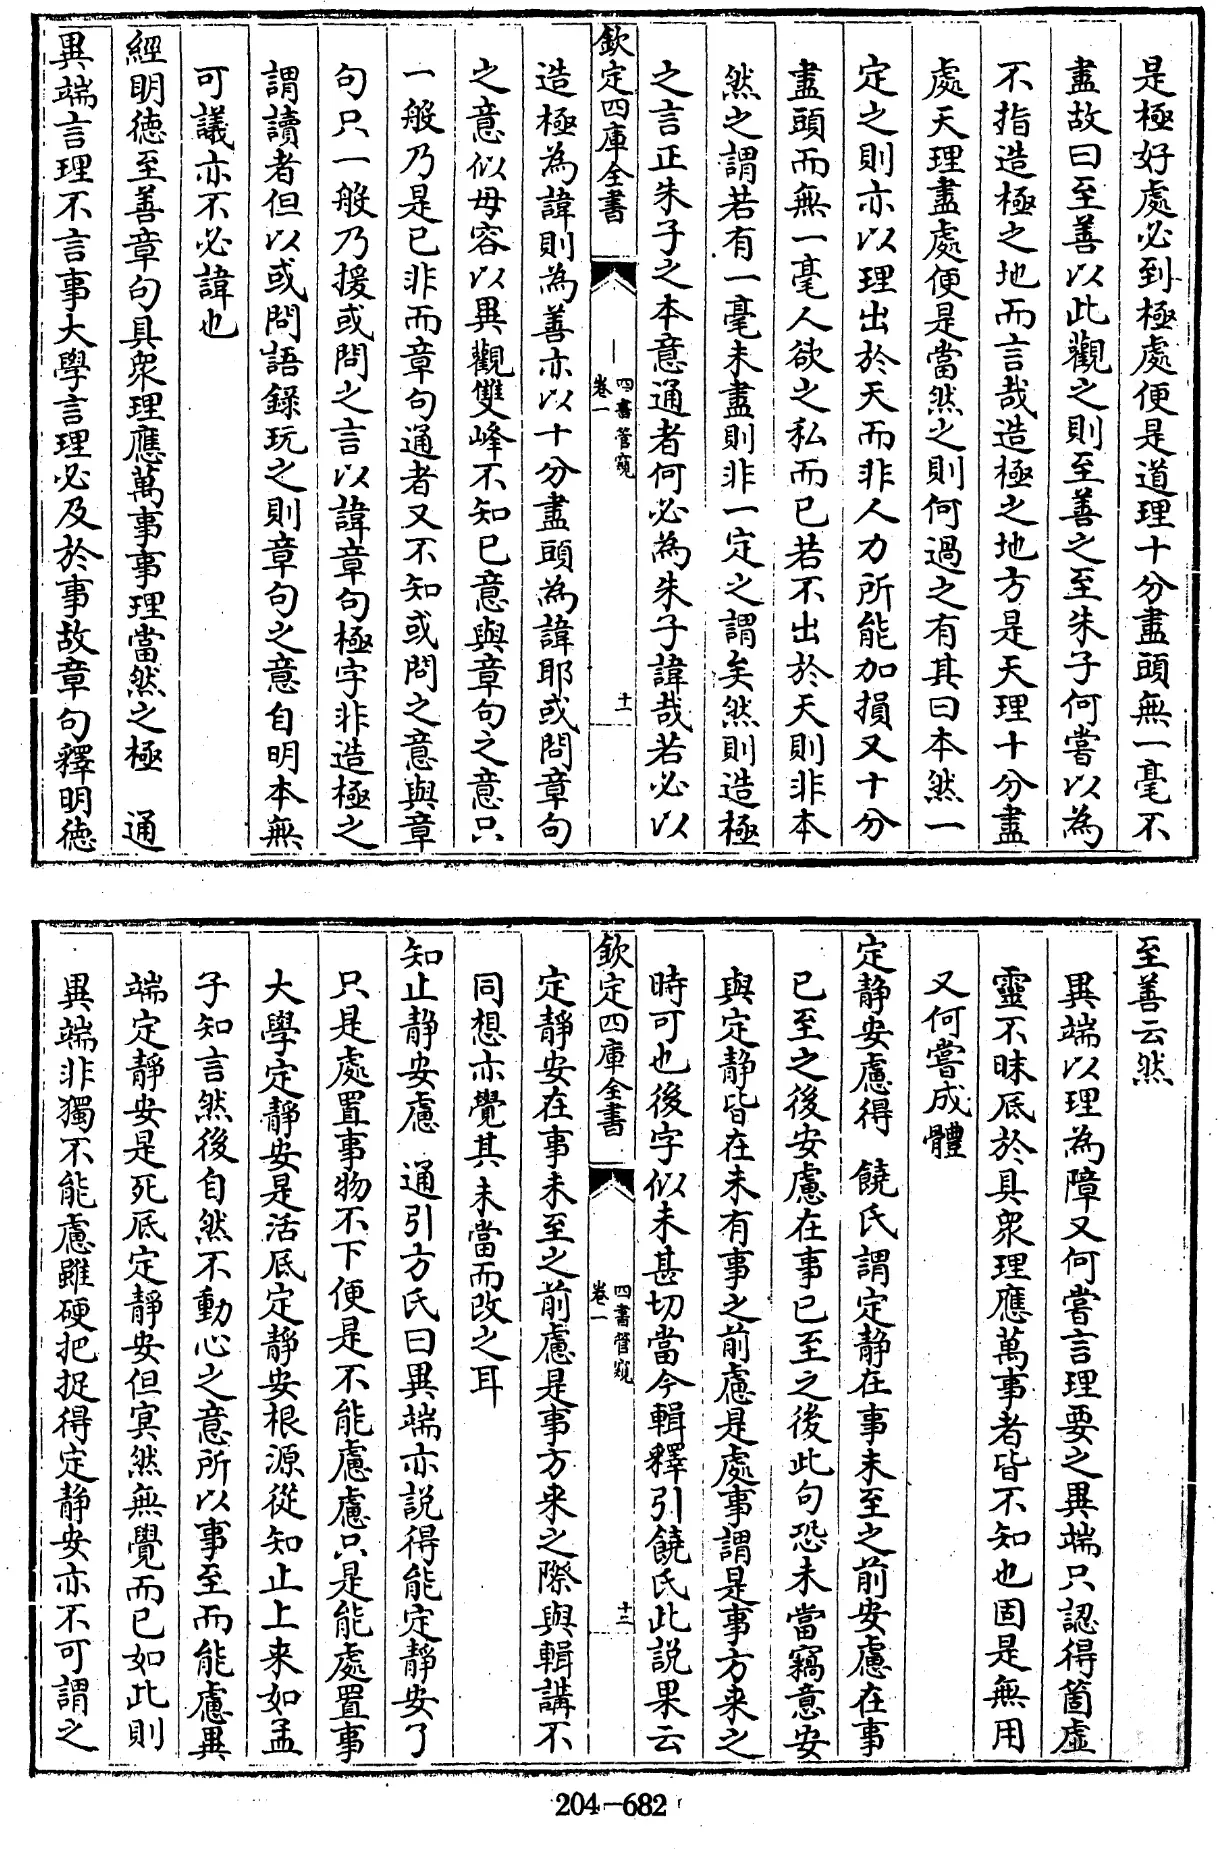 是極好處必到極處便是道理十分盡頭無一毫不
盡故曰至善以此觀之則至善之至朱子何嘗以為
不指造極之地而言哉造極之地方是天理十分盡
處天理盡處便是當然之則何過之有其曰本然一
定之則亦以理出於天而非人力所能加損又十分
盡頭而無一毫人欲之私而已若不出於天則非本
然之謂若有一毫未盡則非一定之謂矣然則造極
之言正朱子之本意通者何必為朱子諱哉若必以
欽定四庫全書
四書管窺
卷一
十一
造極為諱則為善亦以十分盡頭為諱耶或問章句
之意似毋容以異觀雙峰不知已意與章句之意只
一般乃是已非而章句通者又不知或問之意與章
句只一般乃援或問之言以諱章句極字非造極之
謂讀者但以或問語錄玩之則章句之意自明本無
可議亦不必諱也
經明德至善章句具衆理應萬事事理當然之極 通
異端言理不言事大學言理必及於事故章句釋明德
至善云然
異端以理為障又何嘗言理要之異端只認得箇虛
靈不昧底於具衆理應萬事者皆不知也固是無用
又何嘗成體
定静安慮得 饒氏謂定静在事未至之前安慮在事
已至之後安慮在事已至之後此句恐未當竊意安
與定静皆在未有事之前慮是處事謂是事方来之
時可也後字似未甚切當今輯釋引饒氏此說果云
欽定四庫全書
四書管窺
卷一
十二
定静安在事未至之前慮是事方来之際與輯講不
同想亦覺其未當而改之耳
知止静安慮 通引方氏曰異端亦說得能定靜安了
只是處置事物不下便是不能慮慮只是能處置事
大學定靜安是活底定靜安根源從知止上来如孟
子知言然後自然不動心之意所以事至而能慮異
端定靜安是死底定靜安但冥然無覺而已如此則
異端非獨不能慮雖硬把捉得定静安亦不可謂之
204-682